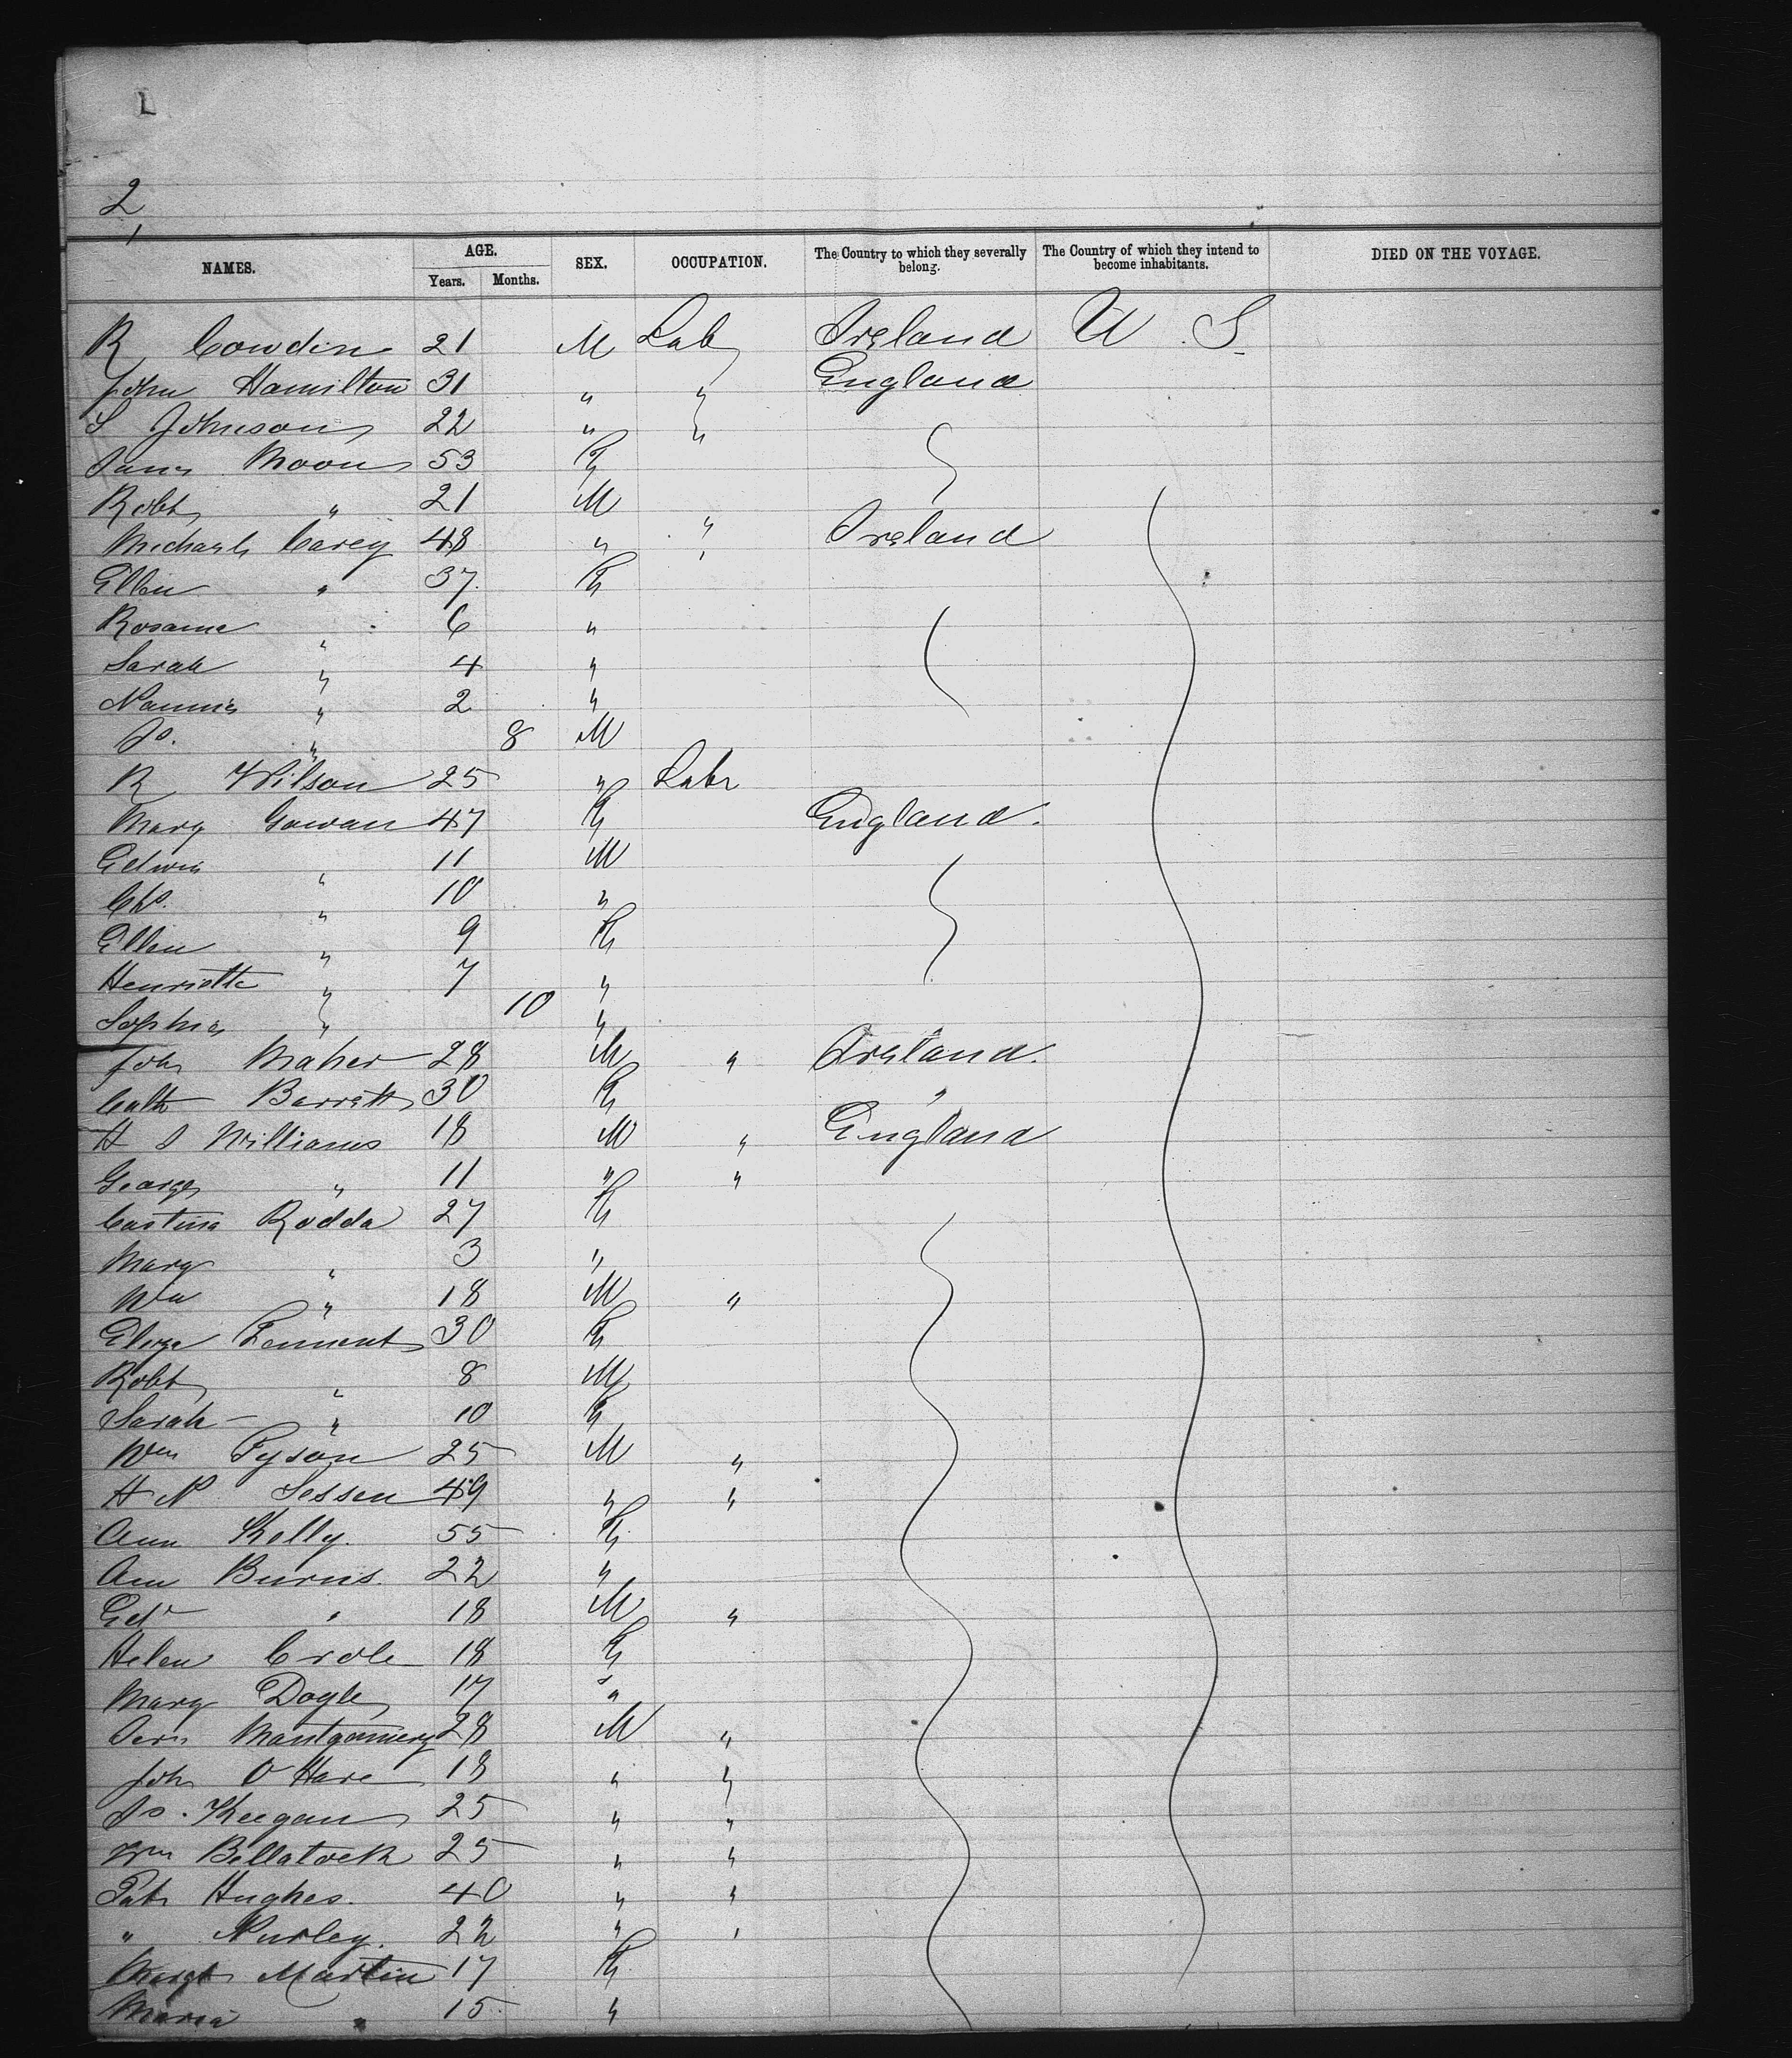 L
2
NAMES. AGE. Years. Months. SEX. OCCUPATION. The Country to which they severally belong. The Country of which they intend to become inhabitants. DIED ON THE VOYAGE.
R Cowdin 21 M Lab Ireland U. S.
John Hamilton 31 " " England
S Johnson 22 " "
Moon 53 F
Robt " 21 M
Michael Carey 48 " " Ireland
Ellen " 37 F
Rosanna " 6 "
Sarah " 4 "
Nannie " 2 "
Jo. " 8 M
R Wilson 25 " Labr
Mary Gowan 47 F England.
Edwin " 11 M
Chs. " 10 "
Ellen " 9 F
Henrietta " 7 "
Sophia " 10 "
John Maher 28 M " Ireland.
Cath Barrett 30 F "
H J Williams 18 M " England
George " 11 " "
Rodda 27 F
Mary " 3 "
Wm " 18 M "
Eliza 30 F
Robt " 8 M
Sarah " 10 F
Wm Tyson 25 M "
H N Jessen 49 " "
Ann Kelly. 55 F
Ann Burns. 22 "
Edw " 18 M "
Helen Crole 18 F
Mary Doyle 17 "
Montgomery 28 M "
John O Hare 18 " "
Jo. Keegan 25 " "
Wm 25 " "
Patr Hughes. 40 " "
" Nurley. 22 " "
Margt Martin 17 F
Maria " 15 "